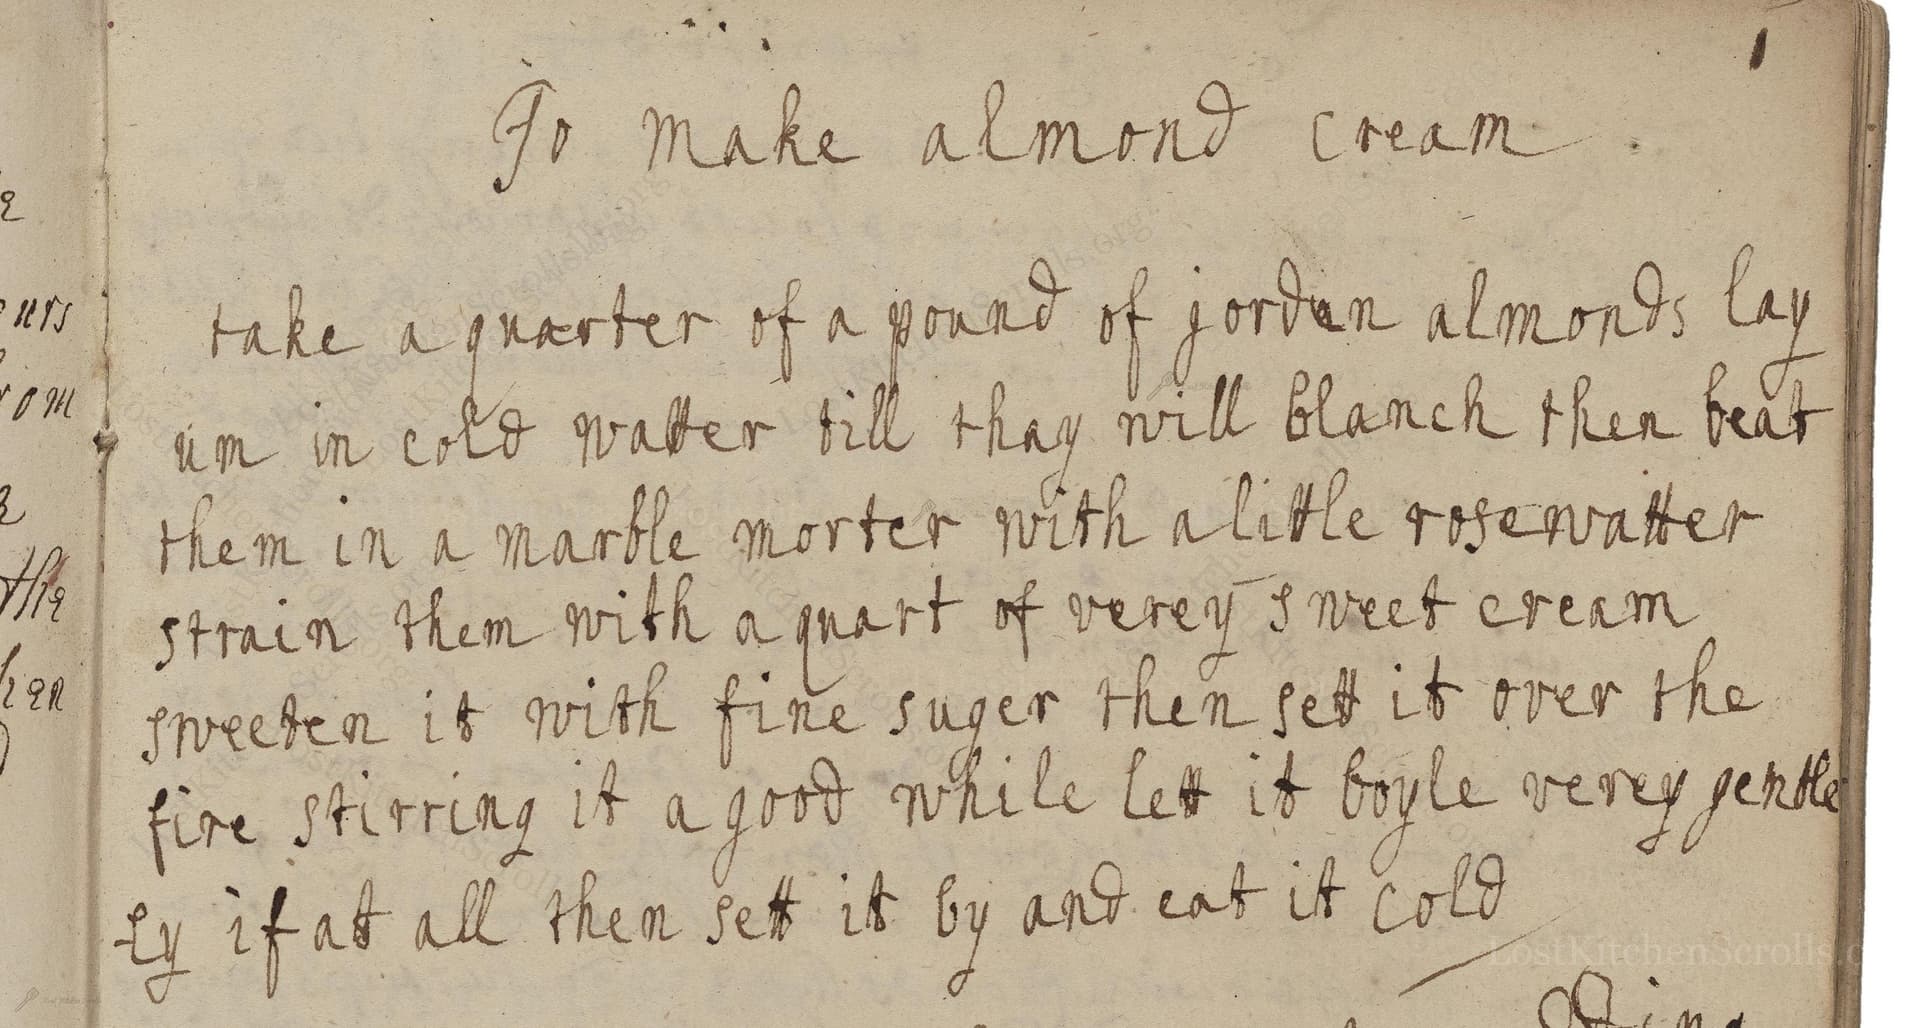 1
To make almond cream
take a quarter of a pound of jordan almonds lay
um in cold watter till thay will blanch then beat
them in a marble morter with a little rosewatter
strain them with a quart of verey sweet cream
sweeten it with fine suger then sett it over the
fire stirring it a good while lett it boyle verey gentle
-ly if at all then sett it by and eat it cold
urs
rom
the
hen
LostKitchenScrolls.o